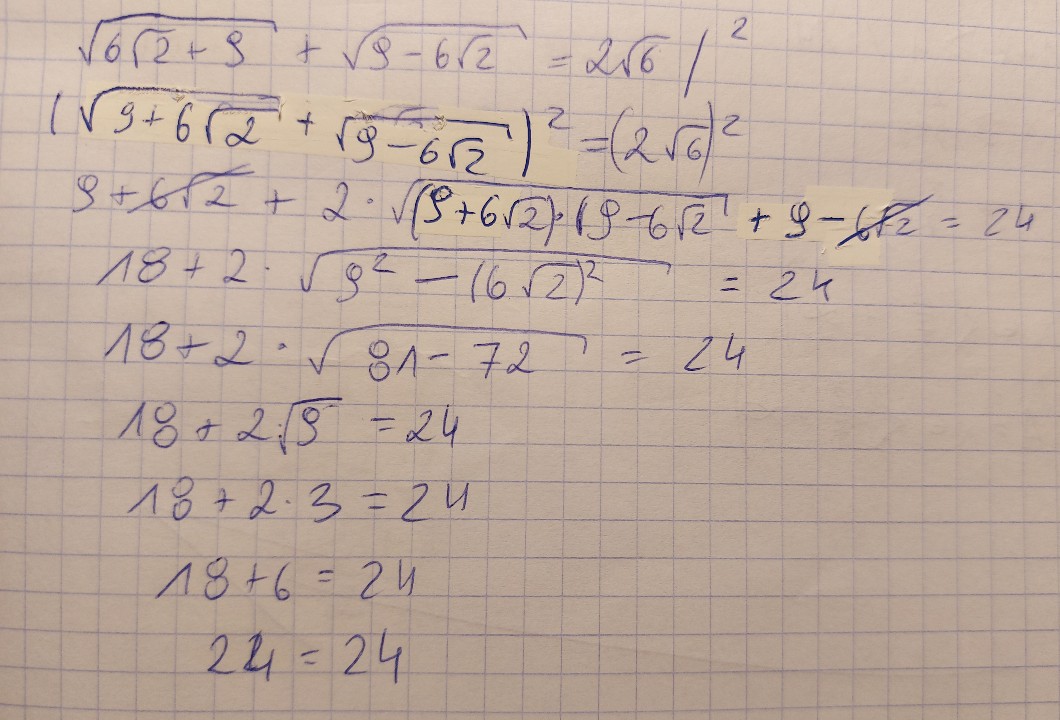 √(6√2 + 9) + √(9 - 6√2) = 2√6 / ²
(√(9 + 6√2) + √(9 - 6√2))² = (2√6)²
9 + 6√2 + 2 · √((9 + 6√2) · (9 - 6√2) + 9 - 6√2 = 24
18 + 2 · √(9² - (6√2)²) = 24
18 + 2 · √(81 - 72) = 24
18 + 2·√9 = 24
18 + 2 · 3 = 24
18 + 6 = 24
24 = 24